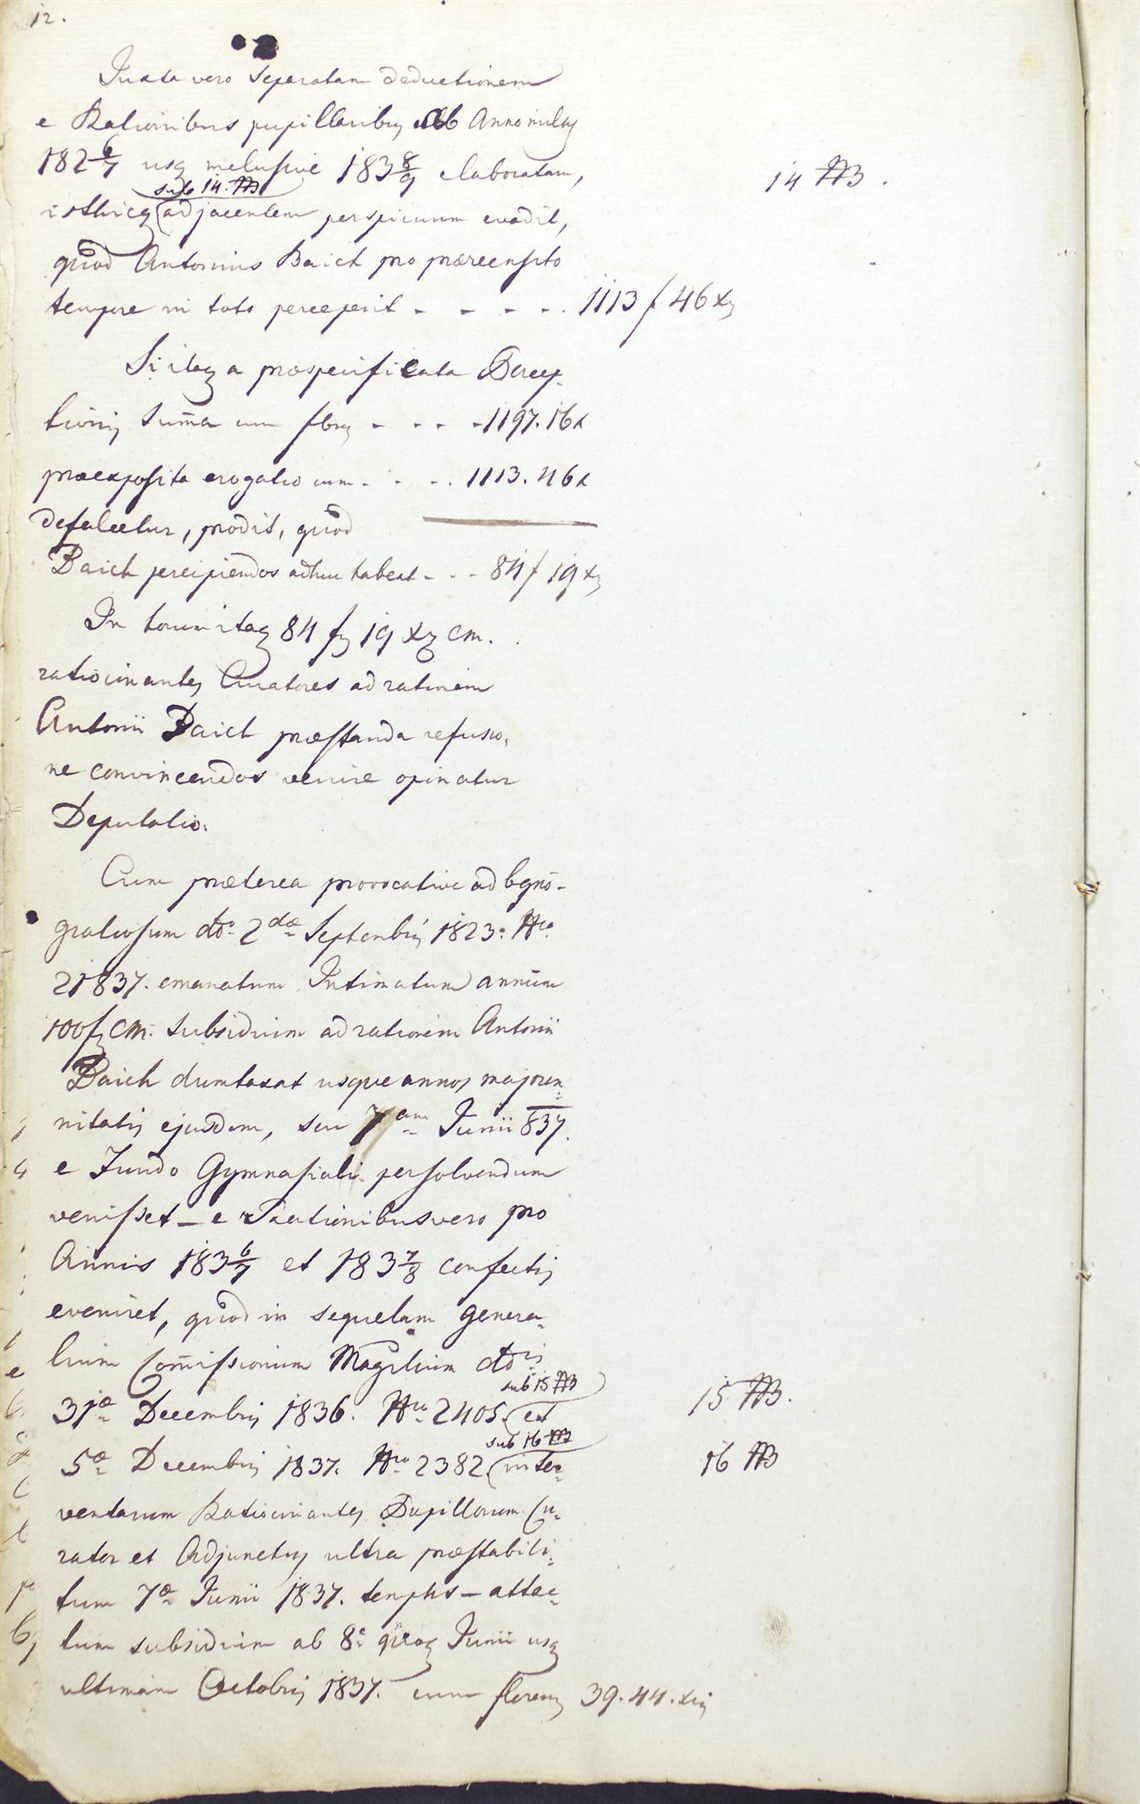 12.
Juxta vero separatam deductionem
e Rationibus pupillaribus ab Anno milit
182 6/7 usq inclusive 183 8/9 elaboratam,
sub 14. 14 .
isthicq adjacentem perspicuum evadit,
quod Antonius Baich pro præcensito
tempore in toto perceperit - - - - . 1113 f 46 x
Si itaq a præspecificata Percep-
tionis Summa cum flnis - - - - 1197. 16 x
præexposita erogatio cum - - . 1113. 46 x
defalcetur, prodit, quod
Baich percipiendos adhuc habeat - - - 84 f 19 x
In horum itaq 84 f 19 x CM.
ratiocinantes Curatores ad rationem
Antonii Baich præstanda refusio-
ne convincendos venire opinatur
Deputatio.
Cum præterea provocative ad bgno-
gratiosum dto 2dæ Septembris 1823. Nro
21837. emanatum Intimatum annuum
100 f CM. subsidium ad rationem Antonii
Baich dumtaxat usque annos majoren-
nitatis ejusdem, seu 7am Junii 837.
e Fundo Gymnasiali persolvendum
venisset - e Rationibus vero pro
Annis 183 6/7 et 183 7/8 confectis
eveniret, quod in sequelam genera-
lium Commissionum Magistralium dtis
sub 15
31a Decembris 1836. Nro 2405 et 15
sub 16
5a Decembris 1837. Nro 2382 inter- 16
ventarum Ratiocinantes Pupillorum Cu-
rator et Adjunctus ultra præstabili-
tum 7a Junii 1837. tempus - attac-
tum subsidium ab 8a quoq Junii usq
ultimam Octobris 1837. cum florenis 39. 44. xris